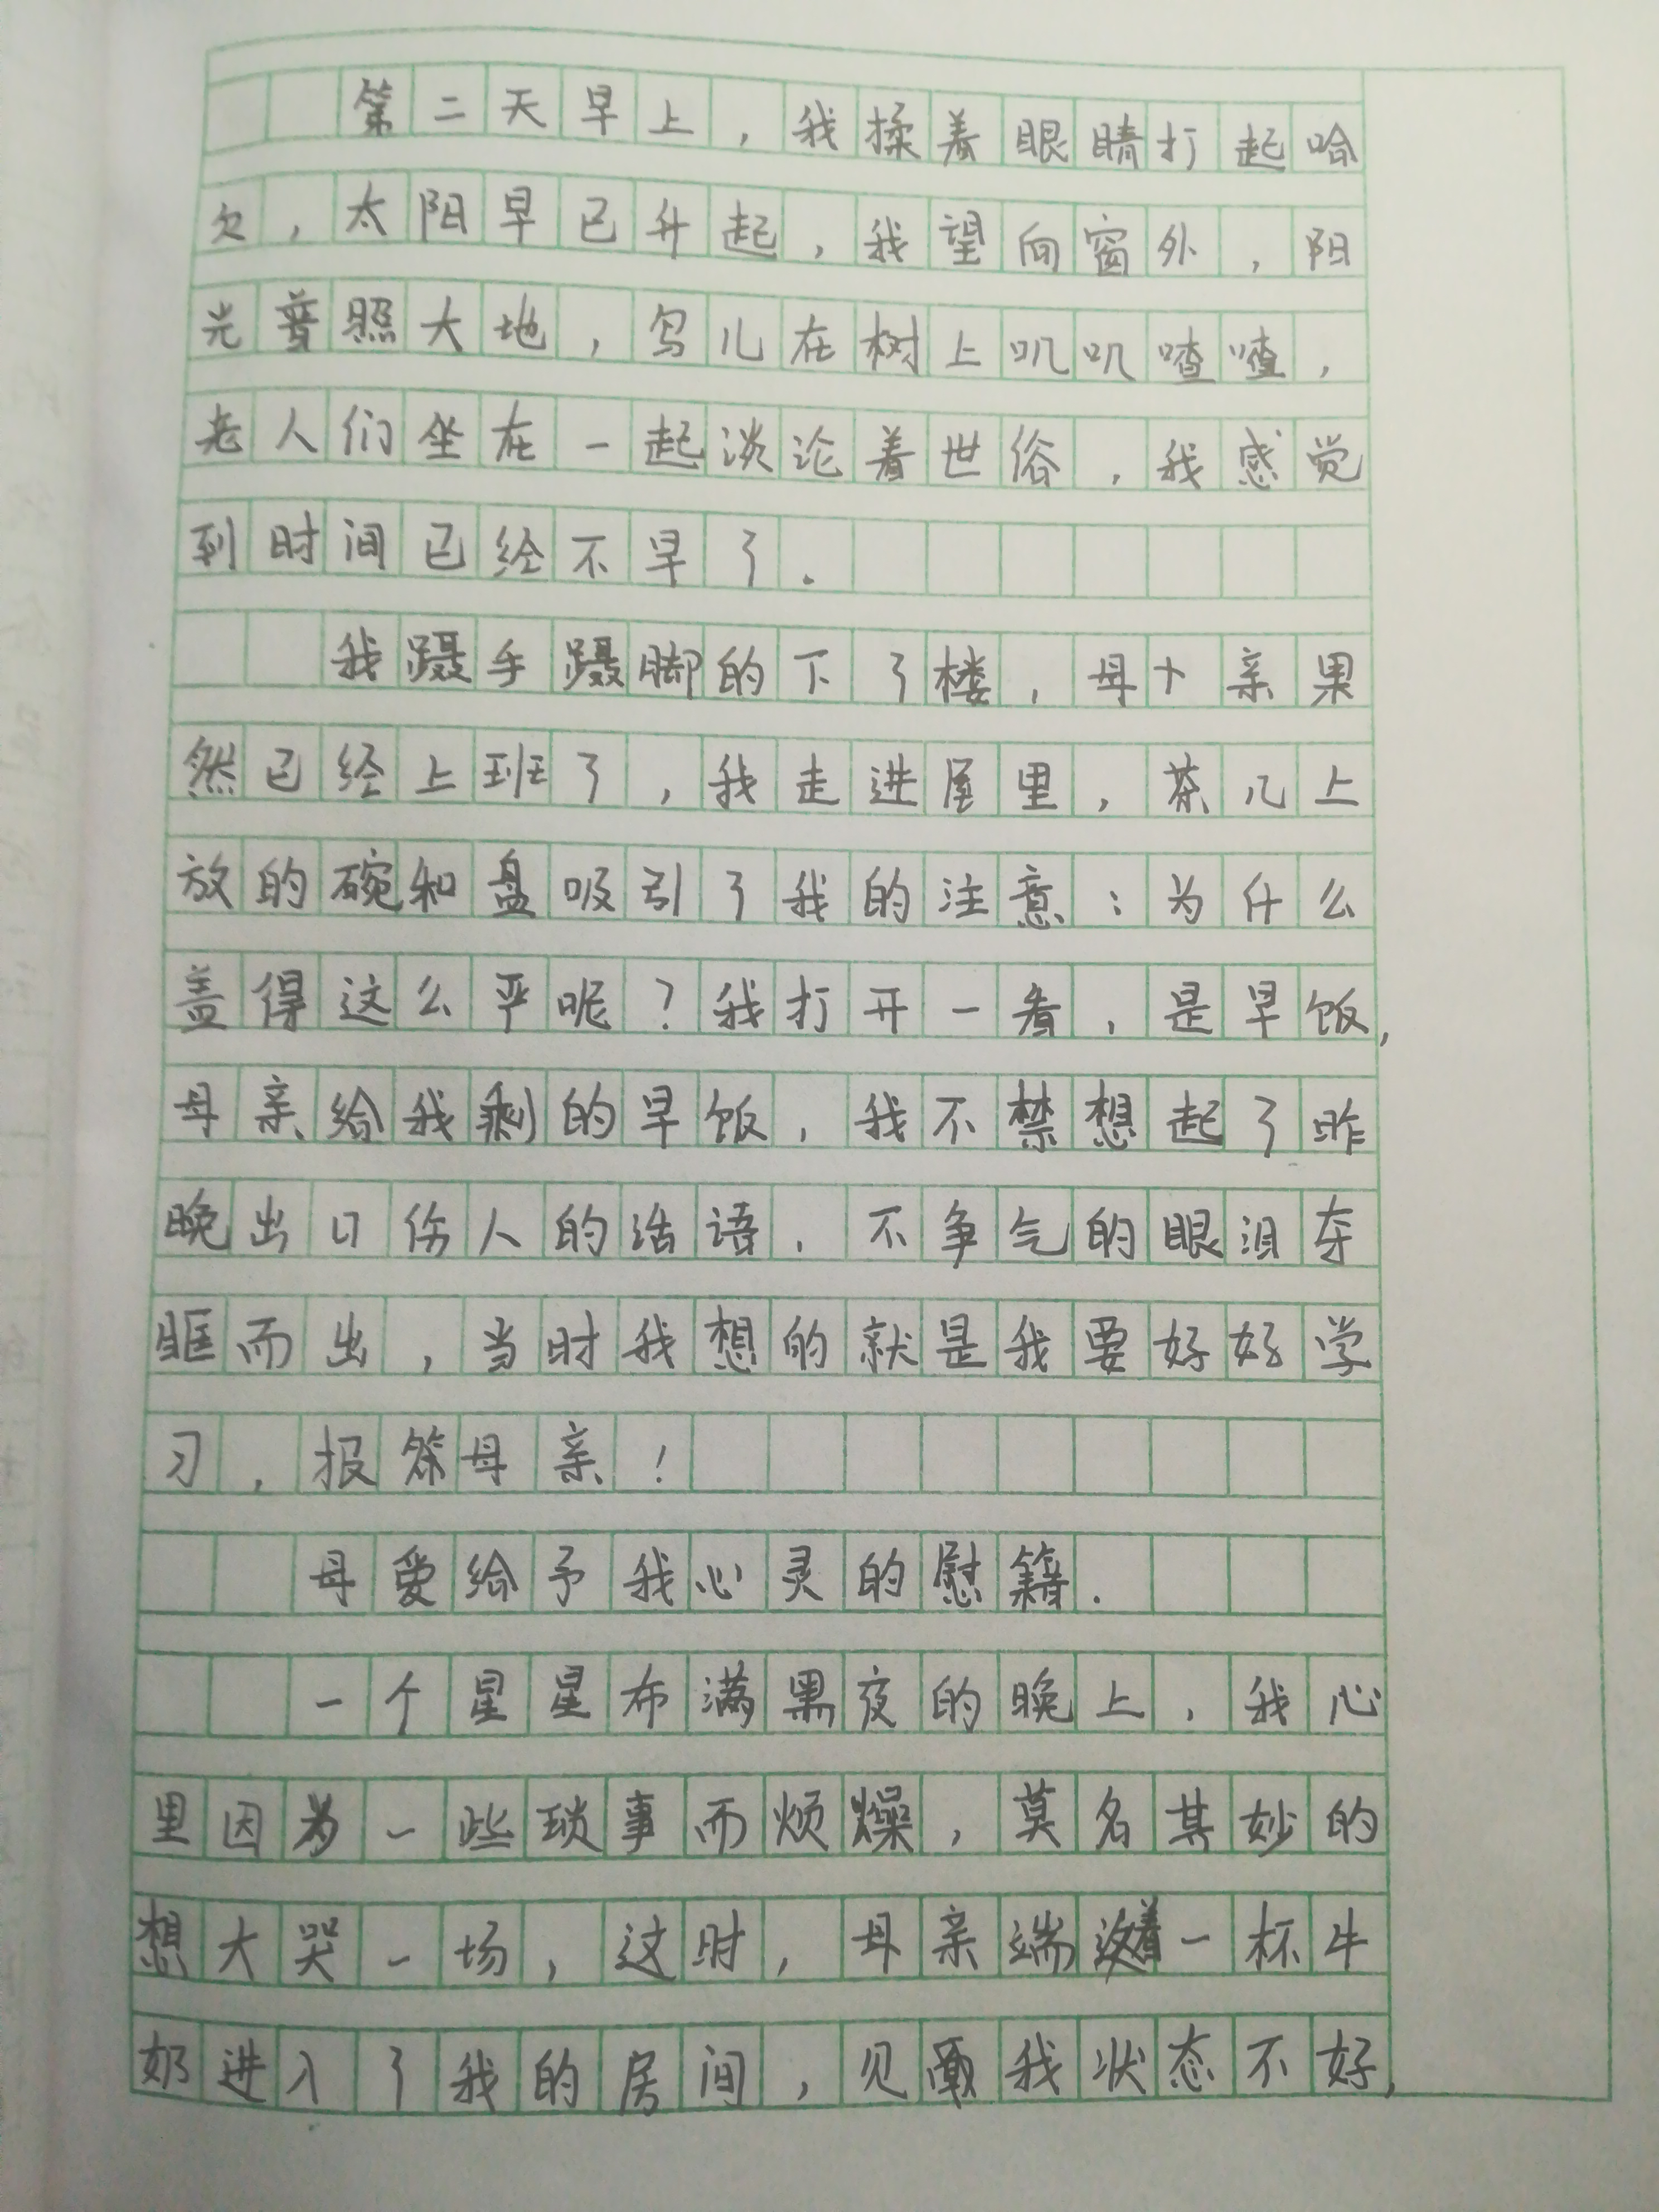 第二天早上，我揉着眼睛打起哈
欠，太阳早已升起，我望向窗外，阳
光普照大地，鸟儿在树上叽叽喳喳，
老人们坐在一起淡论着世俗，我感觉
到时间已经不早了.
我蹑手蹑脚的下了楼，母亲果
然已经上班了，我走进屋里，茶几上
放的碗和盘吸引了我的注意：为什么
盖得这么严呢？我打开一看，是早饭，
母亲给我剩的早饭，我不禁想起了昨
晚出口伤人的话语，不争气的眼泪夺
眶而出，当时我想的就是我要好好学
习，报答母亲！
母爱给予我心灵的慰籍.
一个星星布满黑夜的晚上，我心
里因为一些琐事而烦燥，莫名其妙的
想大哭一场，这时，母亲端着一杯牛
奶进入了我的房间，见我状态不好，